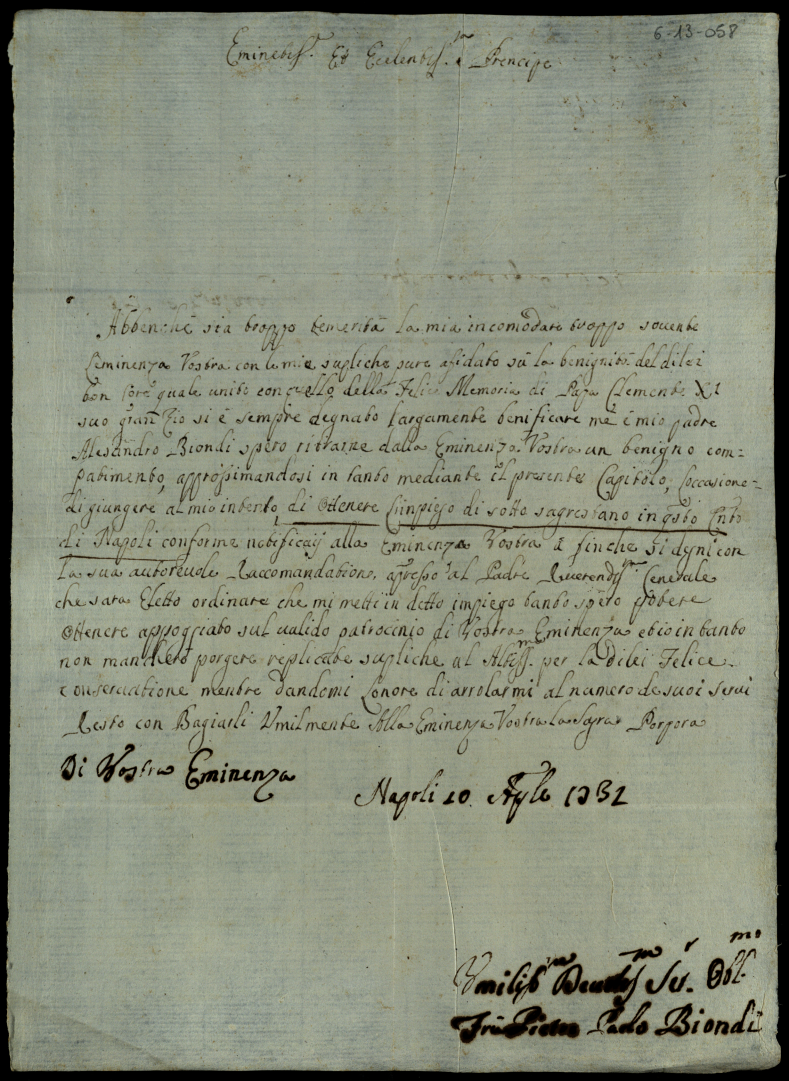 6-13-058
Eminetis.mo Et Ecelentis.mo Prencipe
Abbenche sia troppo temerità la mia incomodare troppo sovente
L'eminenza Vostra con le mie supliche pure afidato sù la benignità del dilei
bon Core quale unito con quello della Felice Memoria di Papa Clemente XI
suo gran Zio si è sempre degnato largamente benificare me è mio padre
Alesandro Biondi spero ritrarne dalla Eminenza Vostra un benigno com=
patimento, approssimandosi in tanto mediante il presente Capitolo, l'occasione=
di giungere al mio intento, di Ottenere L'inpiego di sotto sagrestano in qsto Cnto
di Napoli conforme notificaij alla Eminenza Vostra à finche si dgni con
la sua autorevole Raccomandatione, apresso al Padre Reverendis.mo Generale
che sara Eletto ordinare che mi metti in detto impiego tanto spero potere
Ottenere appoggiato sul valido patrocinio di Vostra Eminenza et io in tanto
non mancherò porgere replicate supliche al Altiss.mo per la dilei Felice
conservatione mentre dandomi L'onore di arrolarmi al numero de suoi servi
Resto con Bagiarli Vmilmente Alla Eminenza Vostra la Sagra Porpora
Di Vostra Eminenza
Napoli 10 Aple 1732
Vmilis.mo Deuotis.mo Ser. Obl.mo
Fra Pietro Paolo Biondi